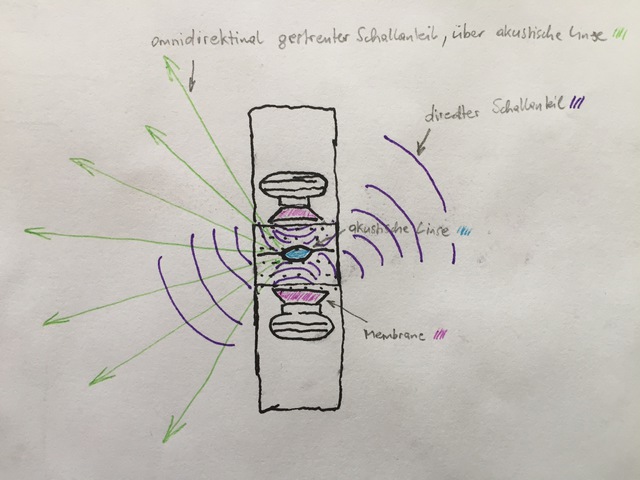 omnidirektinal gestreuter Schallanteil, über akustische Linse
direkter Schallanteil
akustische Linse
Membrane